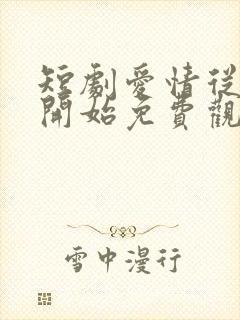 短劇愛情從
開始免費觀
雪中漫行